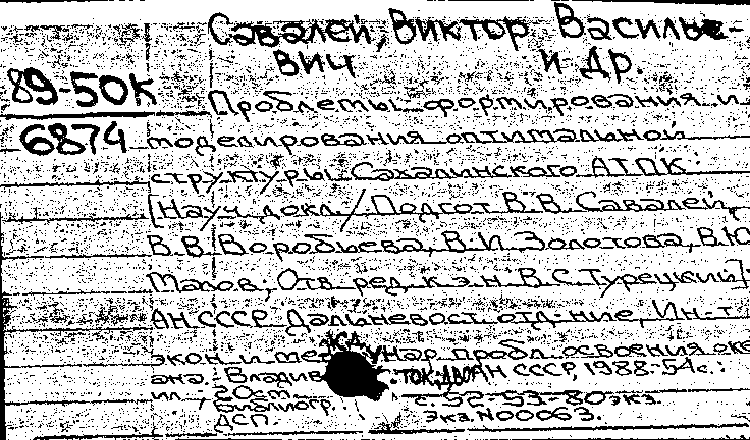 Савалей, Виктор Василье-
вич и др.
89-50К
6874
Проблемы формирования и
моделирования оптимальной
структуры Сахалинского АТПК:
[Науч. докл./Подгот. В.В. Савалей,
В.В. Воробьева, В.И. Золотова, В.Ю.
Малов; Отв. ред. к.э.н. В.С. Турецкий];
АН СССР. Дальневост. отд-ние, Ин-т
экон. и междунар. пробл. освоения оке
ана. - Владив ток: ДВО АН СССР, 1988.-54 с.:
ил., 20 см. -
Библиогр.: с. 52-53 - 80 экз.
ДСП. Экз. N00063.